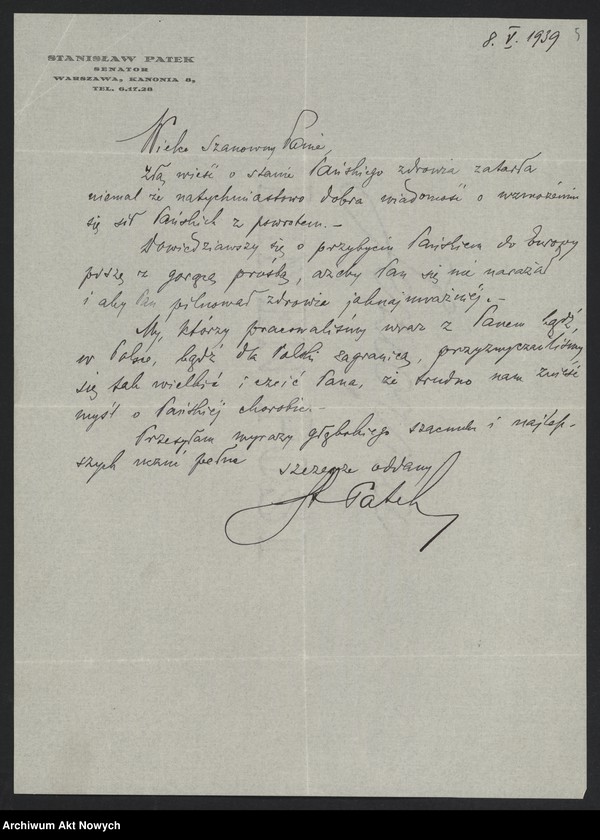 8. V. 1939
5
STANISŁAW PATEK
SENATOR
WARSZAWA, KANONIA 8,
TEL. 6.17.28
Wielce Szanowny Panie,
Złą wieść o stanie Pańskiego zdrowia zatarła
niemal że natychmiastowo dobra wiadomość o wzmożeniu
się sił Pańskich z powrotem.–
Dowiedziawszy się o przybyciu Pańskiem do Europy
piszę z gorącą prośbą, ażeby Pan się nie narażał
i aby Pan pilnował zdrowia jaknajuważniej.–
My, którzy pracowaliśmy wraz z Panem bądź
w Polsce, bądź dla Polski zagranicą, przyzwyczailiśmy
się tak wielbić i czcić Pana, że trudno nam znieść
myśl o Pańskiej chorobie.–
Przesyłam wyrazy głębokiego szacunku i najlep-
szych uczuć pełne
szczerze oddany
St Patek
Archiwum Akt Nowych